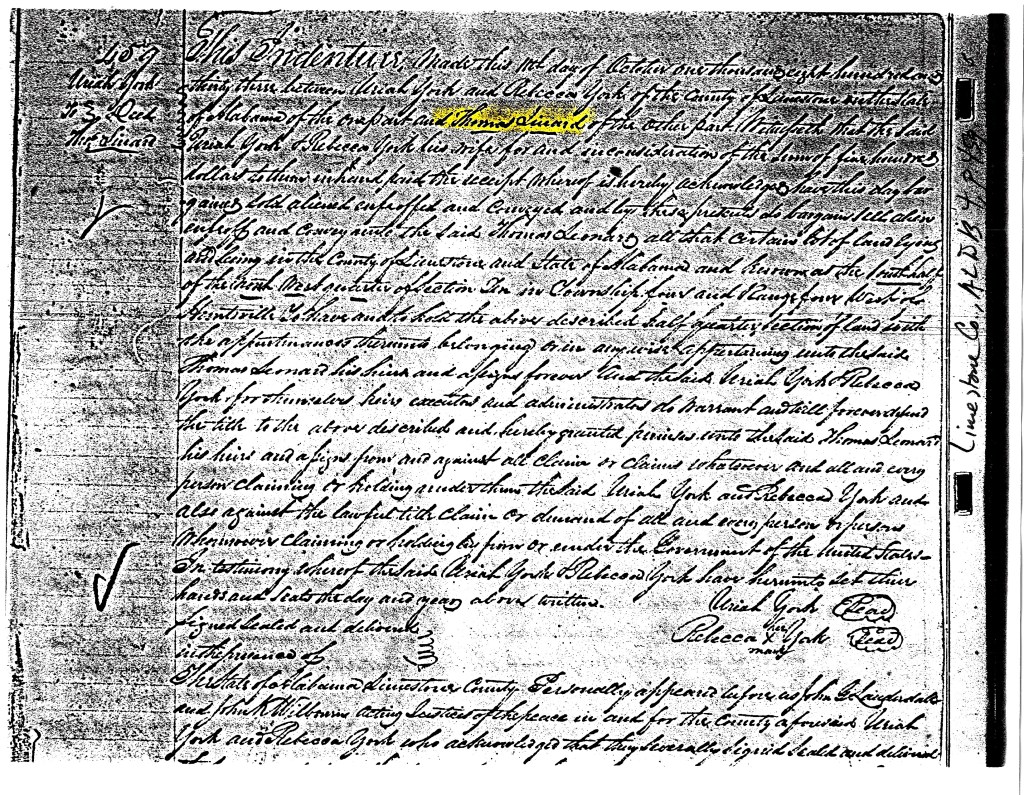 409
Uriah York
To } Deed
Thos Linard
This Indenture, Made this 11th day of October one thousand eight hundred and
thirty three between Uriah York and Rebecca York of the County of Limestone and the State
of Alabama of the one part and Thomas Linard of the other part Witnesseth that the said
Uriah York & Rebecca York his wife for and in consideration of the sum of five hundred
dollars to them in hand paid the receipt whereof is hereby acknowledged have this day bar
gained sold aliened enfeoffed and Conveyed and by these presents do bargain sell alien
enfeoff and Convey unto the said Thomas Leonard all that certain lot of land lying
and being in the County of Limestone and State of Alabama and known as the South half
of the North West quarter of Section Ten in Township four and Range four West of
Huntsville to have and to hold the above described half quarter section of land with
the appurtinances thereunto belonging or in any wise appertaining unto the said
Thomas Leonard his heirs and assigns forever And the said Uriah York & Rebecca
York for themselves heirs executors and administrators do warrant and will forever defend
the title to the above described and hereby granted premises unto the said Thomas Leonard
his heirs and assigns from and against all claim or claims whatsoever and all and every
person claiming or holding under them the said Uriah York and Rebecca York and
also against the lawful title claim or demand of all and every person or persons
whomsoever claiming or holding by from or under the Government of the United States
In testimony whereof the said Uriah York & Rebecca York have hereunto set their
hands and seals the day and year above written.
Uriah York (Seal)
Signed Sealed and delivered
Rebecca her X mark York (Seal)
in the presence of
The State of Alabama Limestone County Personally appeared before us John G Lauderdale
and John K Wilbourn acting Justices of the peace in and for the County aforesaid Uriah
York and Rebecca York who acknowledged that they severally signed sealed and delivered
Limestone Co., AL DB 4, P 409